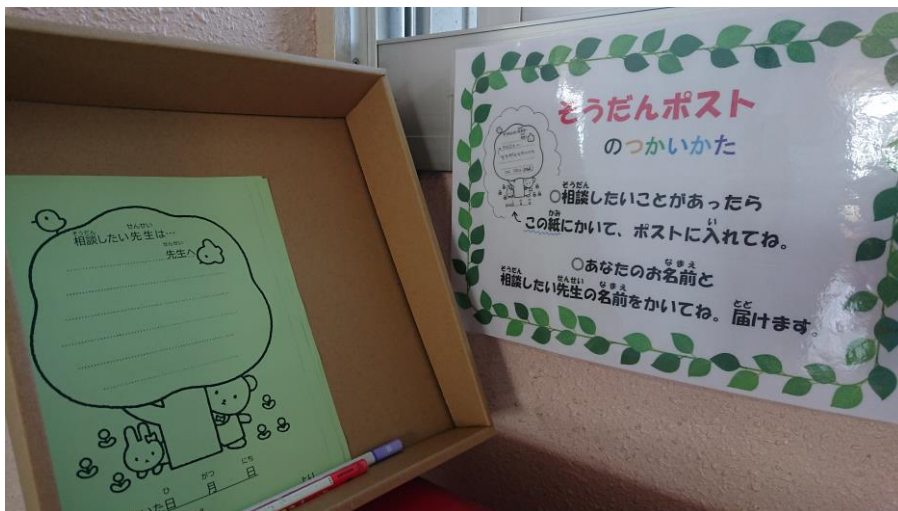 相談したい先生は…
先生へ
いた日 月 日
そうだんポスト
のつかいかた
○相談したいことがあったら
この紙にかいて、ポストに入れてね。
○あなたのお名前と
相談したい先生の名前をかいてね。届けます。